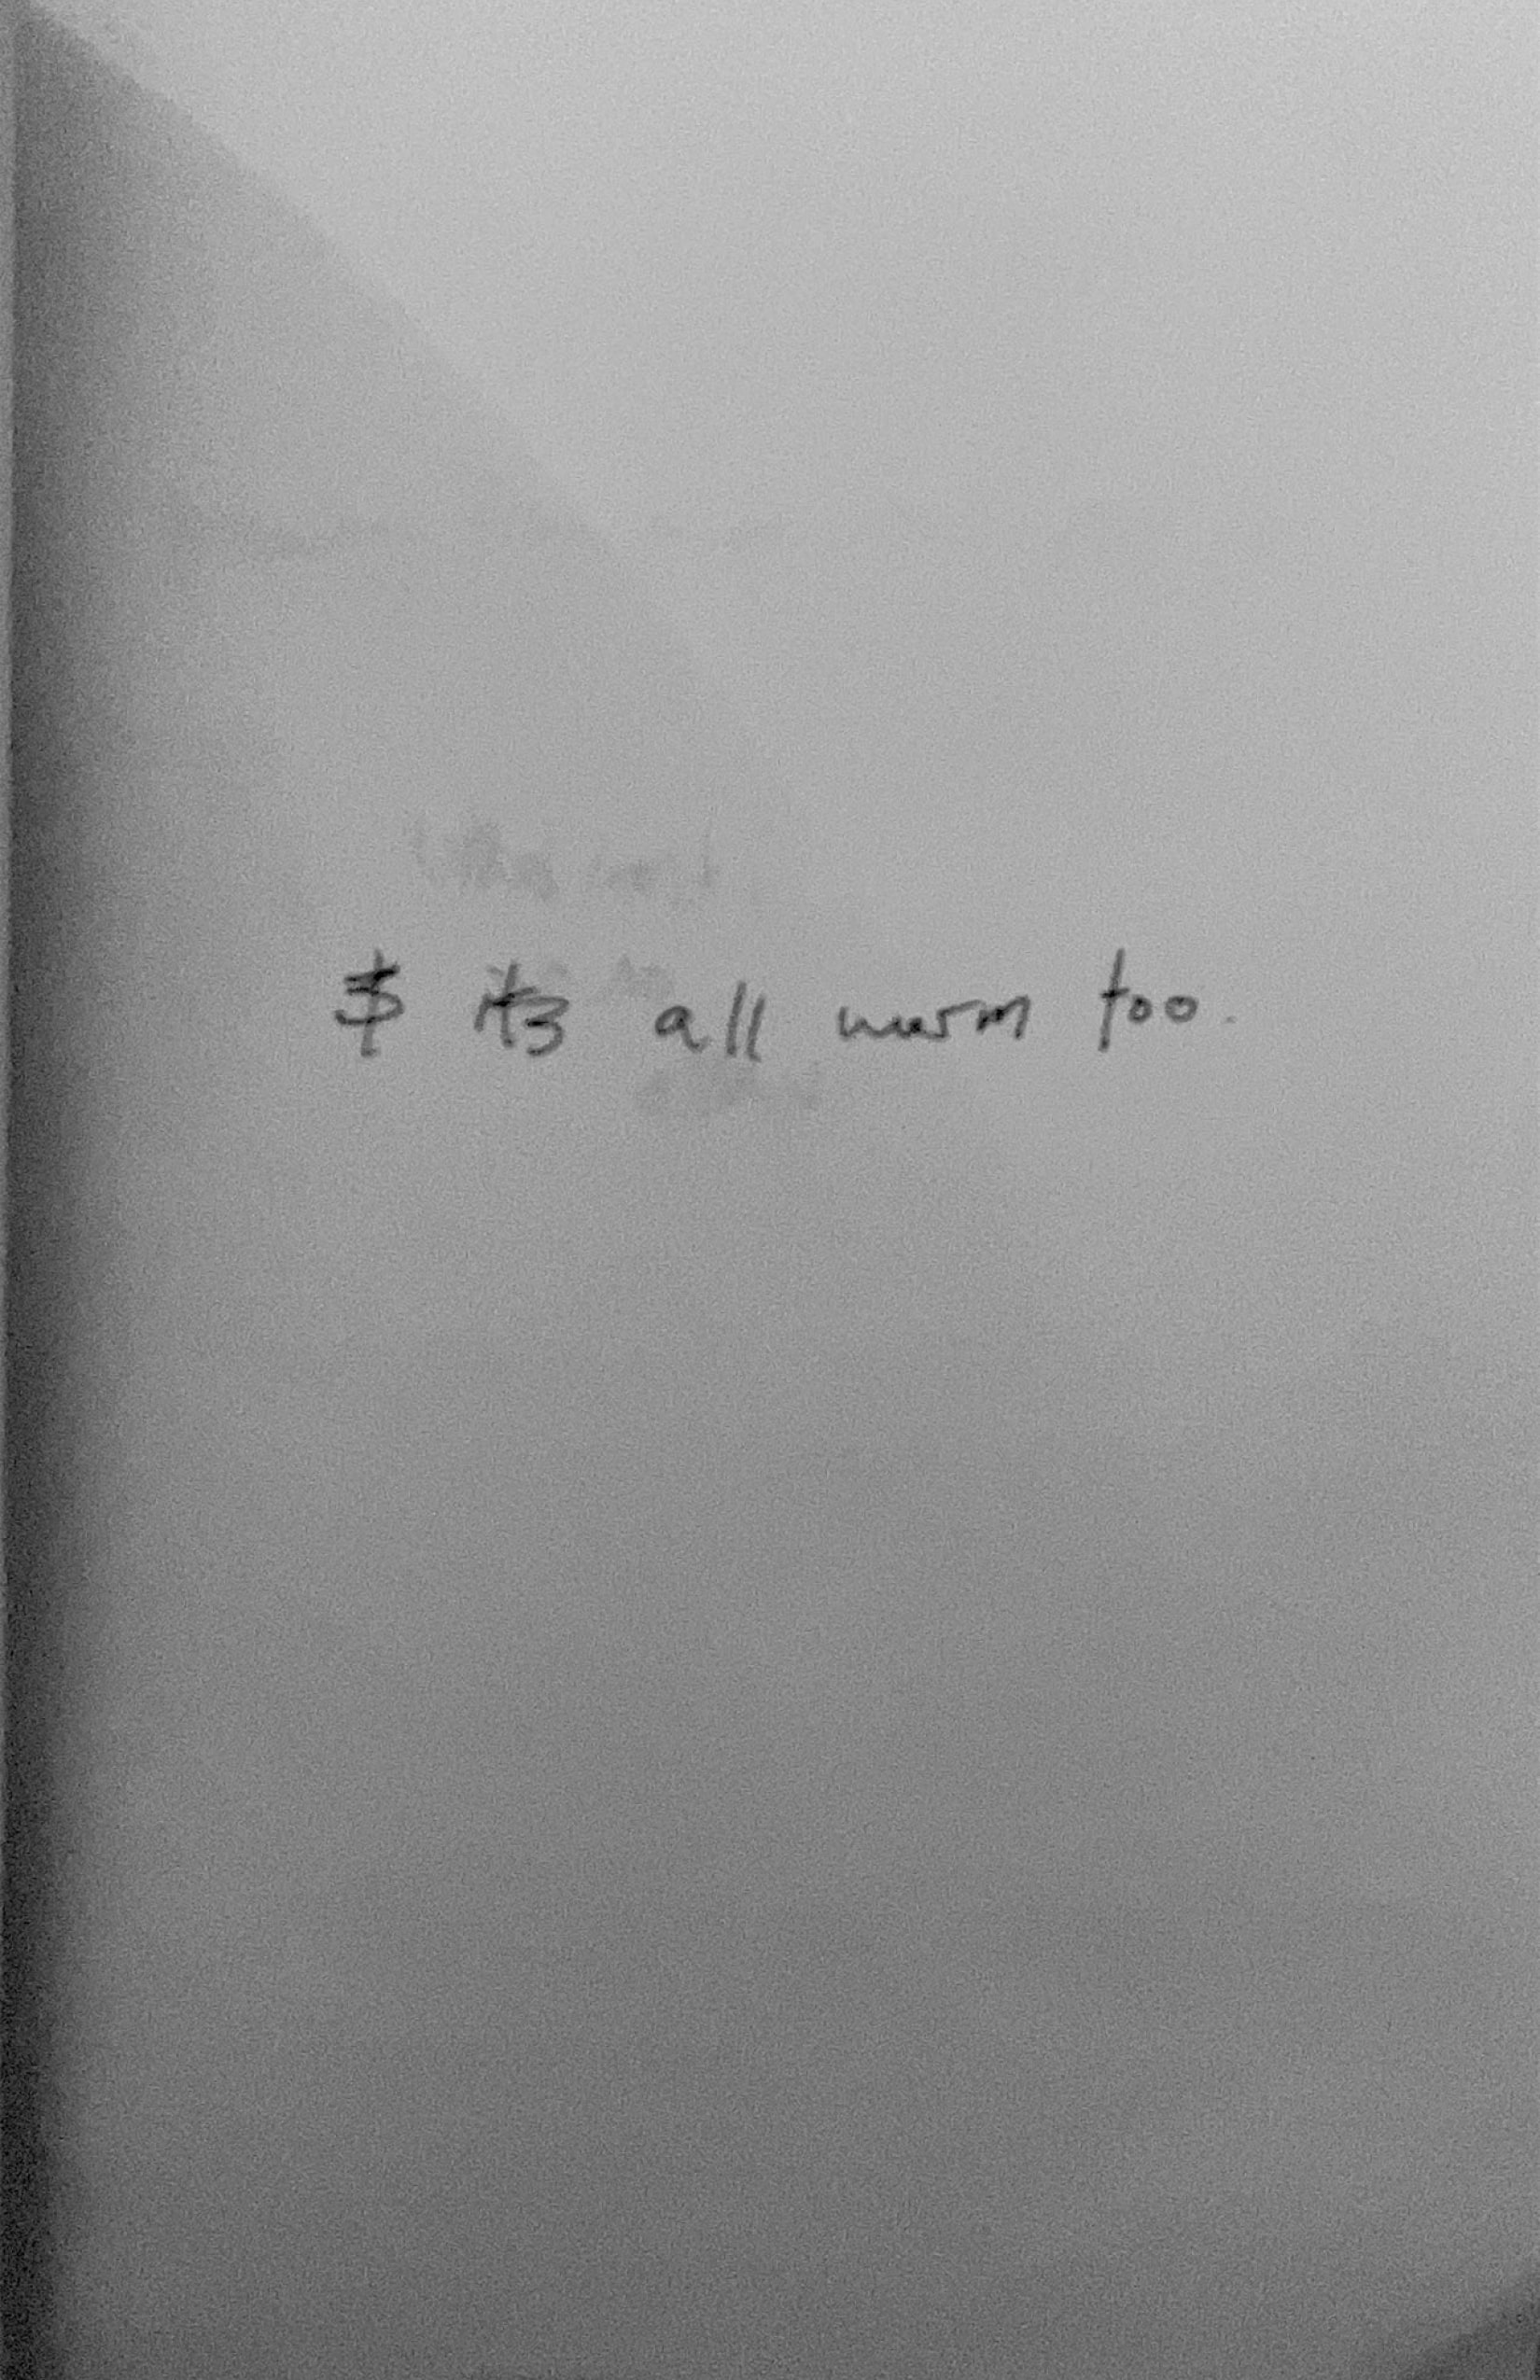 & its all warm too.